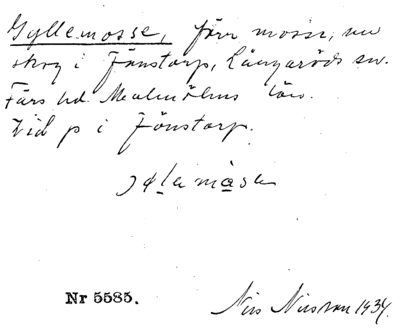 Gyllemosse, förr mosse, nu
skog i Fönstorp, Långaröds sn.
Färs hd. Malmöhus län.
Vid p i Fönstorp.
Nr 5585.
Nils Nilsson 1934.